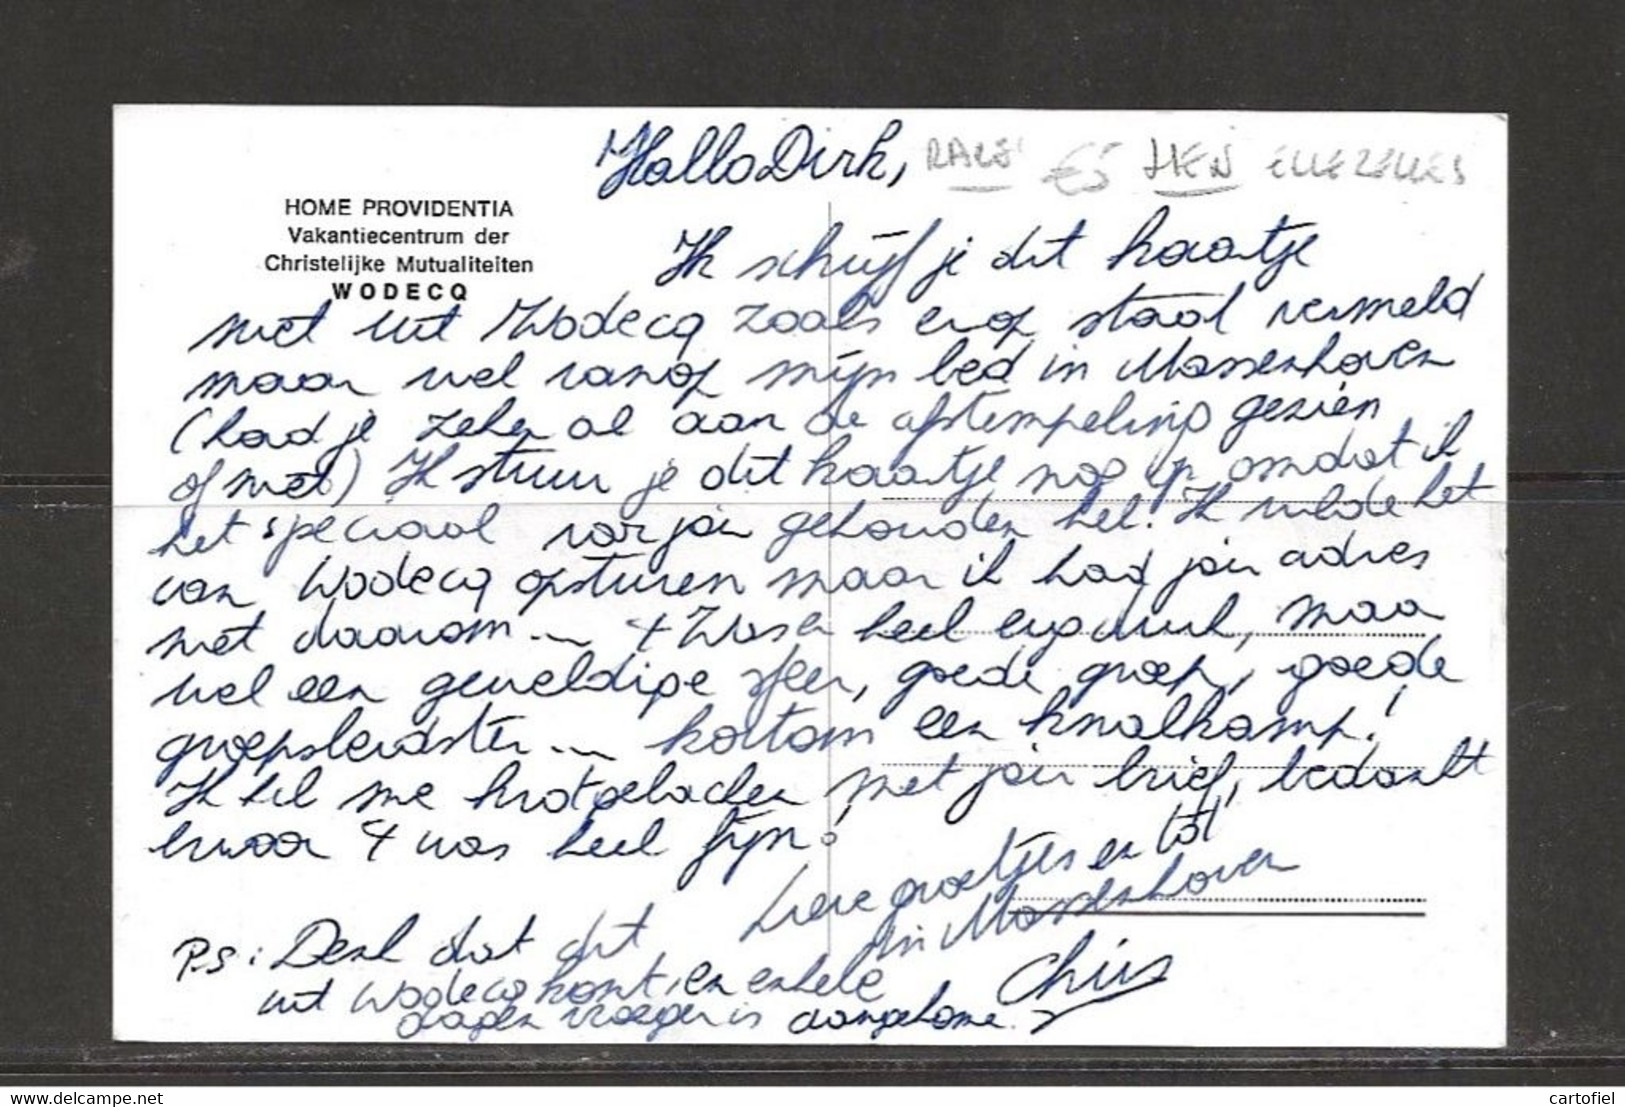 Hallo Dirk,
HEN ELLEZELLES
HOME PROVIDENTIA
Vakantiecentrum der
Christelijke Mutualiteiten
WODECQ
Ik schrijf je dit kaartje
niet uit Wodecq zoals erop staat vermeld
maar wel vanop mijn bed in Massenhoven
(had je zeker al aan de afstempeling gezien
of niet) Ik stuur je dit kaartje nog op omdat ik
het speciaal voor jou gehouden heb. Ik wilde het
van Wodecq opsturen maar ik had jou adres
niet daarom ... 't Was er heel erg druk, maar
wel een geweldige sfeer, goede groep, goede
groepsleidster ... kortom een knalkamp!
Ik heb me krotgelachen met jou brief, bedankt
ervoor 't was heel fijn!
Lieve groetjes en tot
in Massenhoven
Chris
P.S: Denk dat dit
uit Wodecq komt, en enkele
dagen vroeger is aangekome.
cartofiel
delcampe.net